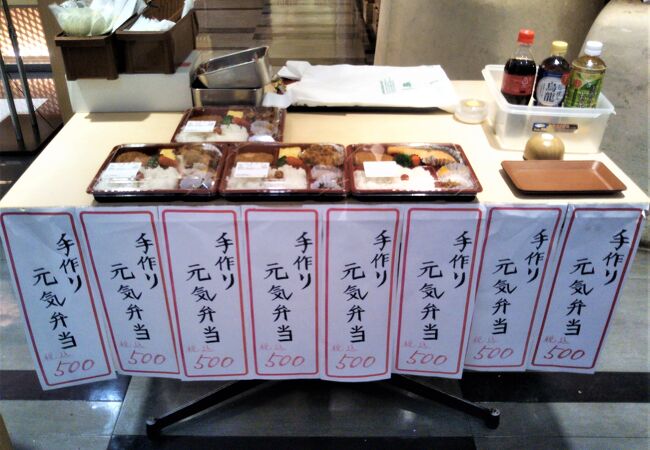 手作り
元気弁当
税込
500
手作り
元気弁当
税込
500
手作り
元気弁当
税込
500
手作り
元気弁当
税込
500
手作り
元気弁当
税込
500
手作り
元気弁当
税込
500
手作り
元気弁当
税込
500
手作り
元気弁当
税込
500
烏龍